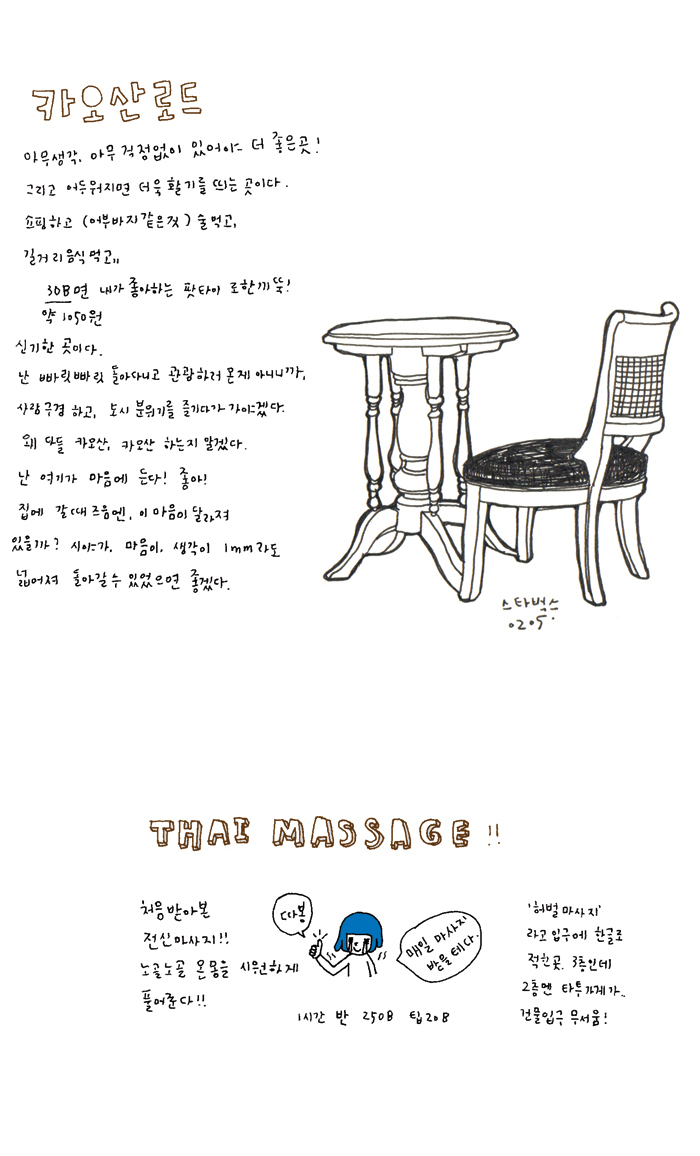 카오산로드
아무생각, 아무 걱정없이 있어야 더 좋은곳!
그리고 어두워지면 더욱 활기를 띄는 곳이다.
쇼핑하고 (어부바지같은것) 술먹고,
길거리음식 먹고,,
30B면 내가 좋아하는 팟타이 로한끼 뚝!
약 1050원
신기한 곳이다.
난 빠릿빠릿 돌아다니고 관광하러 온게 아니니까,
사람구경 하고, 도시 분위기를 즐기다가 가야겠다.
왜 다들 카오산, 카오산 하는지 알겠다.
난 여기가 마음에 든다! 좋아!
집에 갈때 즈음엔, 이 마음이 달라져
있을까? 시야가, 마음이, 생각이 1mm라도
넓어져 돌아갈수 있었으면 좋겠다.
스타벅스
0205.
THAI MASSAGE !!
처음받아본
전신마사지!!
노골노골 온몸을 시원하게
풀어준다!!
따봉
매일 마사지
받을테다.
1시간 반 250B 팁20B
'허벌마사지'
라고 입구에 한글로
적힌곳. 3층인데
2층엔 타투가게가..
건물입구 무서움!